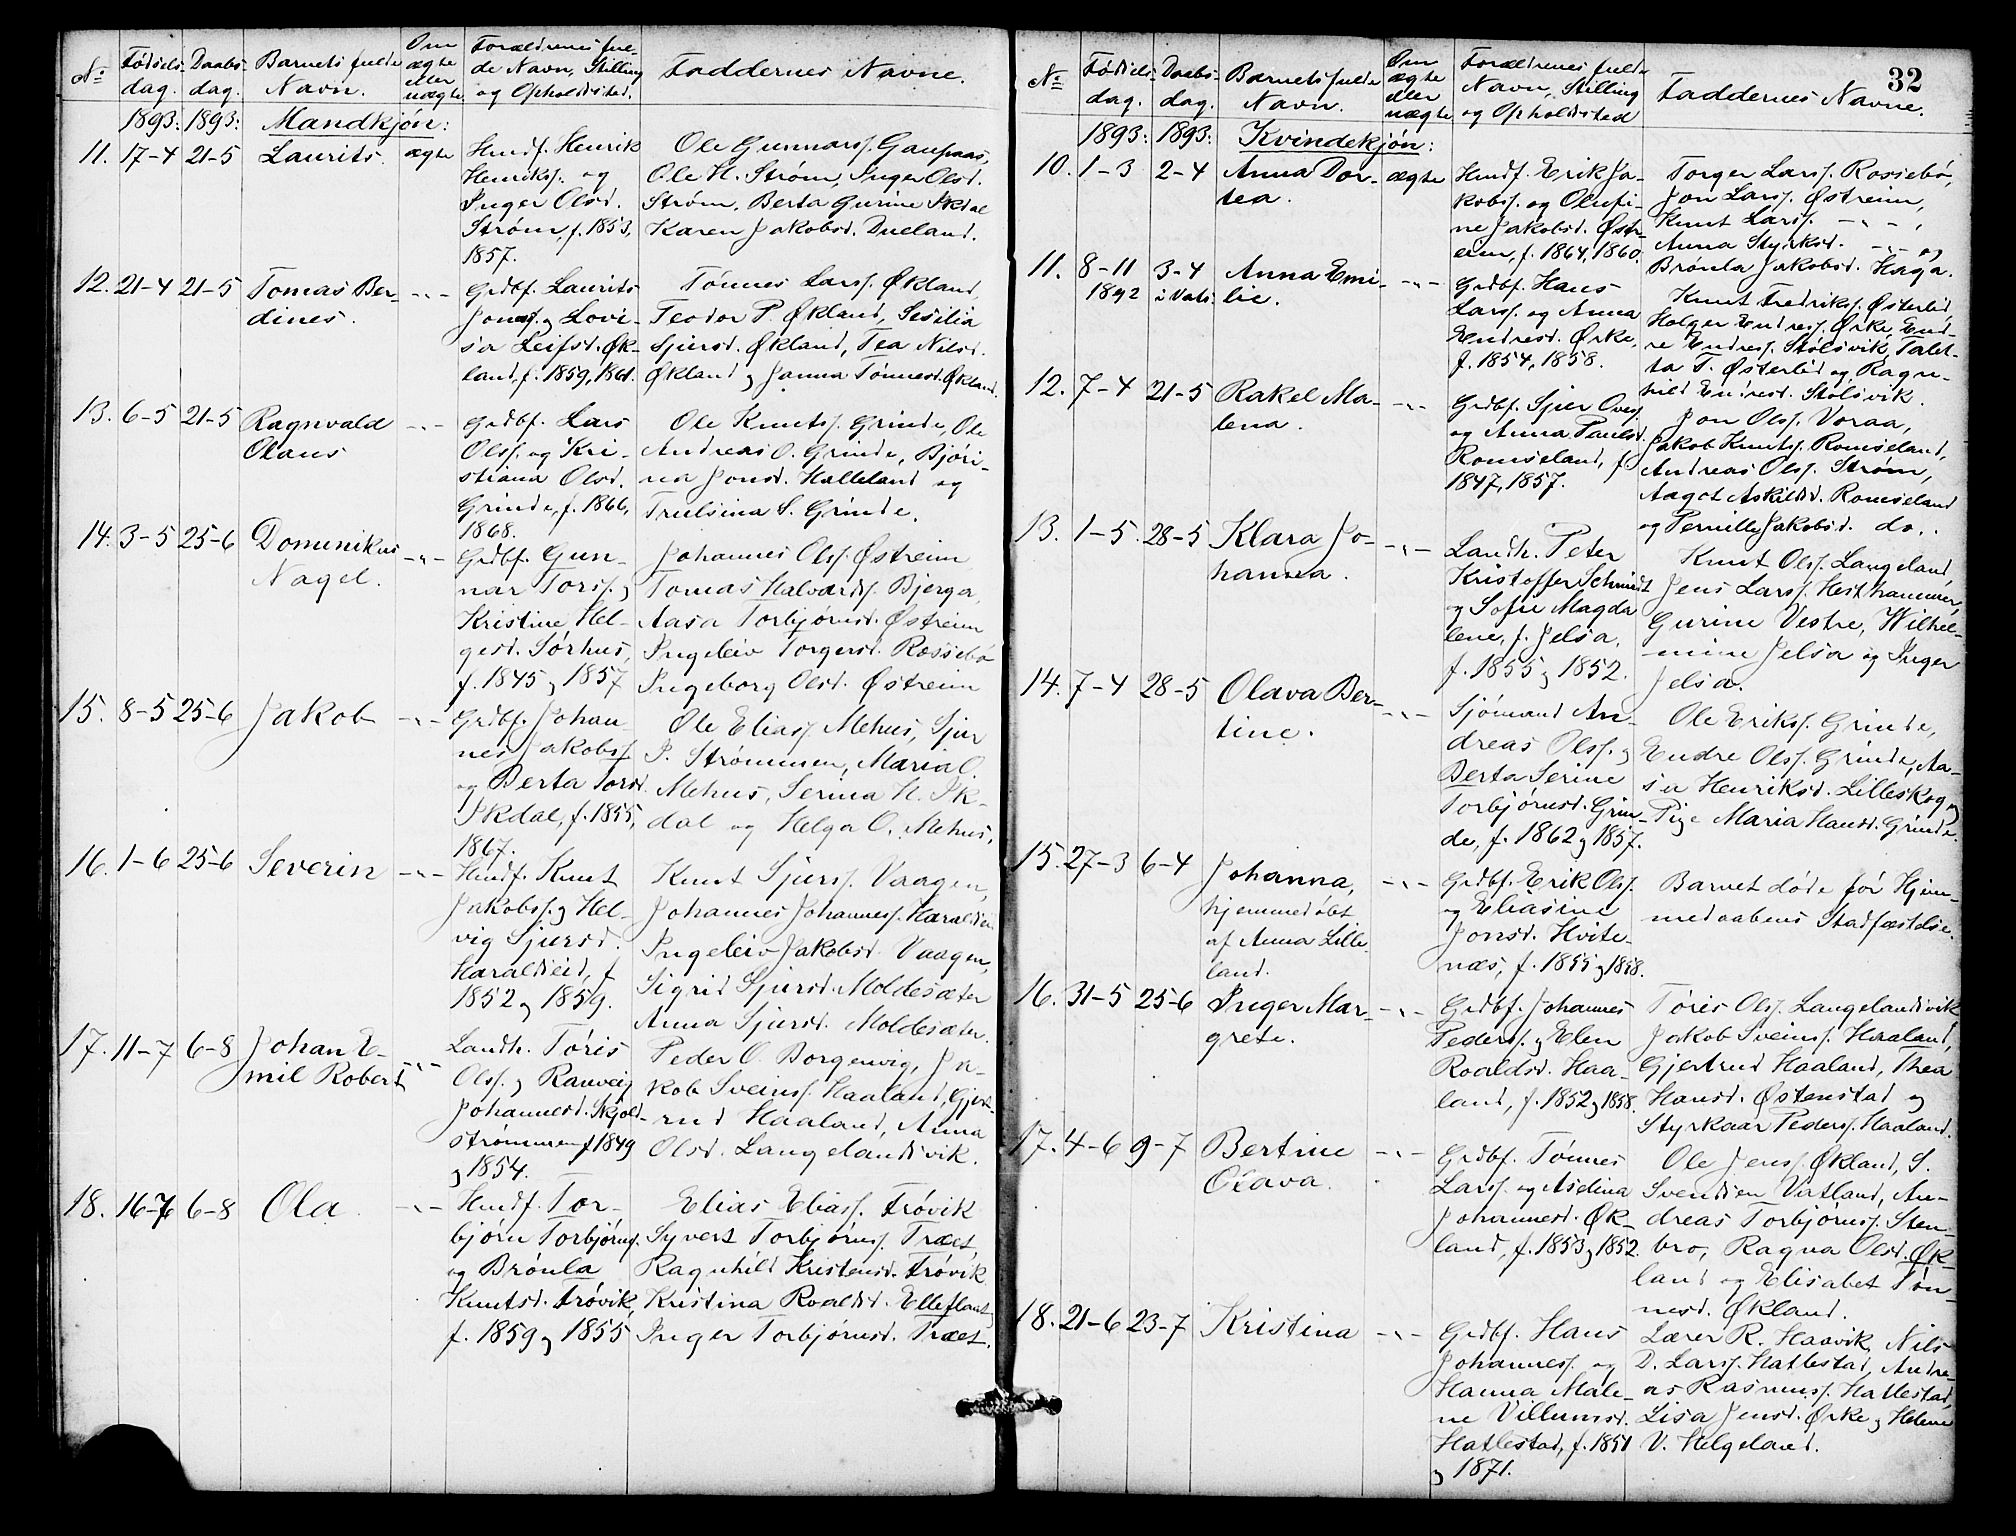 No
Fødsels-
dag.
Daabs-
dag.
Barnets fulde
Navn.
Om
ægte
eller
uægte
Forældrenes ful-
de Navn, Stilling
og Opholdsted.
Faddernes Navne.
1893: 1893: Mandkjøn:
11. 17-4 21-5 Laurits. ægte
Husdf. Henrik
Henriks. og
Inger Olsd.
Strøm, f. 1853,
1857.
Ole Gunnarsf. Gaupaas,
Ole H. Strøm, Inger Olsd.
Strøm, Berta Gurine Ikdal
Karen Jakobsd. Dueland.
12. 21-4 21-5 Tomas Ber-
dines.
-"-
Grdbf. Laurits
Jonasf. og Lovi-
sa Leifsd. Øk-
land, f. 1859, 1861.
Tønnes Larsf. Økland,
Teodor P. Økland, Sesilia
Sjursd. Økland, Tea Nilsd.
Økland og Janna Tønnesd. Økland.
13. 6-5 21-5 Ragnvald
Olaus
-"-
Grdbf. Lars
Olsf. og Kri-
stiana Olsd.
Grinde, f. 1866,
1868.
Ole Knutsf. Grinde, Ole
Andreas O. Grinde, Bjøri-
na Jonsd. Halleland og
Trulsina S. Grinde.
14. 3-5 25-6 Dominikus
Nagel.
-"-
Grdbf. Gun-
nar Torsf. og
Kristine Hel-
gesd. Sørhus,
f. 1845 og 1857
Johannes Olsf. Østreim
Tomas Halvardsf. Bjerga,
Aasa Torbjørnsd. Østreim
Ingeleiv Torgersd. Rossebø
Ingeborg Olsd. Østreim
15. 8-5 25-6 Jakob -"-
Grdbf. Johan-
nes Jakobsf.
og Berta Torsd.
Ikdal, f. 1855,
1867.
Ole Eliasf. Mehus, Sjur
P. Strømmen, Maria O.
Mehus, Serina H. Ik-
dal og Helga O. Mehus.
16. 1-6 25-6 Severin -"-
Husdf. Knut
Jakobsf. og Hel-
vig Sjursd.
Haraldseid, f.
1852 og 1859.
Knut Sjursf. Vaagen,
Johannes Johannesf. Haraldseid
Ingeleiv Jakobsd. Vaagen,
Sigrid Sjursd. Moldesæter
Anna Sjursd. Moldesæter.
17. 11-7 6-8 Johan E-
mil Robert
-"-
Landh. Tøris
Olsf. og Ranveig
Johannesd. Skjold-
strømmen f. 1849
og 1854.
Peder O. Borgenvig, Ja-
kob Sveinsf. Haaland, Gjert-
rud Haaland, Anna
Olsd. Langelandsvik.
18. 16-7 6-8 Ola. -"-
Husdf. Tor-
bjørn Torbjørnsf.
og Brønla
Knutsd. Trøvik,
f. 1859 og 1855
Elias Eliasf. Trøvik
Syvert Torbjørnsf. Træet,
Ragnhild Kristensd. Trøvik
Kristina Roaldsd. Elleflaat,
Inger Torbjørnsd. Træet.
32
No
Fødsels-
dag.
Daabs-
dag.
Barnets fulde
Navn.
Om
ægte
eller
uægte
Forældrenes fulde
Navn, Stilling
og Opholdsted
Faddernes Navne.
1893: 1893: Kvindekjøn:
10. 1-3 2-4 Anna Dor-
tea.
ægte
Husdf. Erik Ja-
kobsf. og Olufi-
ne Jakobsd. Øst-
reim, f. 1864, 1860.
Torger Larsf. Rossebø,
Jon Larsf. Østreim,
Knut Larsf. -"-,
Anna Styrksd. -"- og
Brønla Jakobsd. Haga.
11. 8-11 3-4 Anna Emi-
1892 i Vats. lie.
-"-
Grdbf. Hans
Larsf. og Anna
Endresd. Ørke,
f. 1854, 1858.
Knut Fredriksf. Østerlid
Holger Endresf. Ørke, End-
re Endresf. Stølsvik, Talet-
ta T. Østerlid og Ragn-
hild Endresd. Stølsvik.
12. 7-4 21-5 Rakel Ma-
lena.
-"-
Grdbf. Sjur Ovesf.
og Anna Paulsd.
Romseland, f.
1847, 1857.
Jon Olsf. Voraa,
Jakob Knutsf. Romseland,
Andreas Olsf. Strøm,
Aagot Askildsd. Romseland
og Pernille Jakobsd. do.
13. 1-5. 28-5 Klara Jo-
hanna.
-"-
Landh. Peter
Kristoffer Schmidt
og Sofie Magda
lene, f. Jelsa,
f. 1855 og 1852.
Knut Olsf. Langeland,
Jens Larsf. Hesthammer,
Gurine Vestre, Wilhel-
mine Jelsa og Inger
Jelsa.
14. 7-4 28-5 Olava Ber-
tine.
-"-
Sjømand An-
dreas Olsf. og
Berta Serine
Torbjørnsd. Grin-
de, f. 1862 og 1857.
Ole Eriksf. Grinde,
Endre Olsf. Grinde, Aa-
sa Henriksd. Lilleskog og
Pige Maria Hansd. Grinde.
15. 27-3 6-4 Johanna,
hjemmedøbt
af Anna Lille-
land.
-"-
Grdbf. Erik Olsf.
og Eliasine
Jonsd. Hvite-
næs, f. 1855 og 1858.
Barnet døde før Hjem-
medaabens Stadfæstelse.
16. 31-5 25-6 Inger Mar-
grete.
-"-
Grdbf. Johannes
Pedersf. og Elen
Roaldsd. Haa-
land, f. 1852 og 1858.
Tøris Olsf. Langelandsvik
Jakob Sveinsf. Haaland,
Gjertrud Haaland, Thea
Hansd. Østenstad og
Styrkaar Pedersf. Haaland.
17. 4-6 9-7 Bertine
Olava.
-"-
Grdbf. Tønnes
Larsf. og Aselina
Johannesd. Øk-
land, f. 1853 og 1852
Ole Jensf. Økland, S.
Svendsen Vatland, An-
dreas Torbjørnsf. Sten-
bro, Ragna Olsd. Øk-
land og Elisabet Tøn-
nesd. Økland.
18. 21-6 23-7 Kristina -"-
Grdbf. Hans
Johannesf. og
Hanna Male-
ne Villumsd.
Hatlestad, f. 1851
og 1871.
Lærer R. Haavik, Nils
D. Larsf. Hatlestad, Andre-
as Rasmusf. Hatlestad,
Lisa Jensd. Ørke og Helene
V. Helgeland.